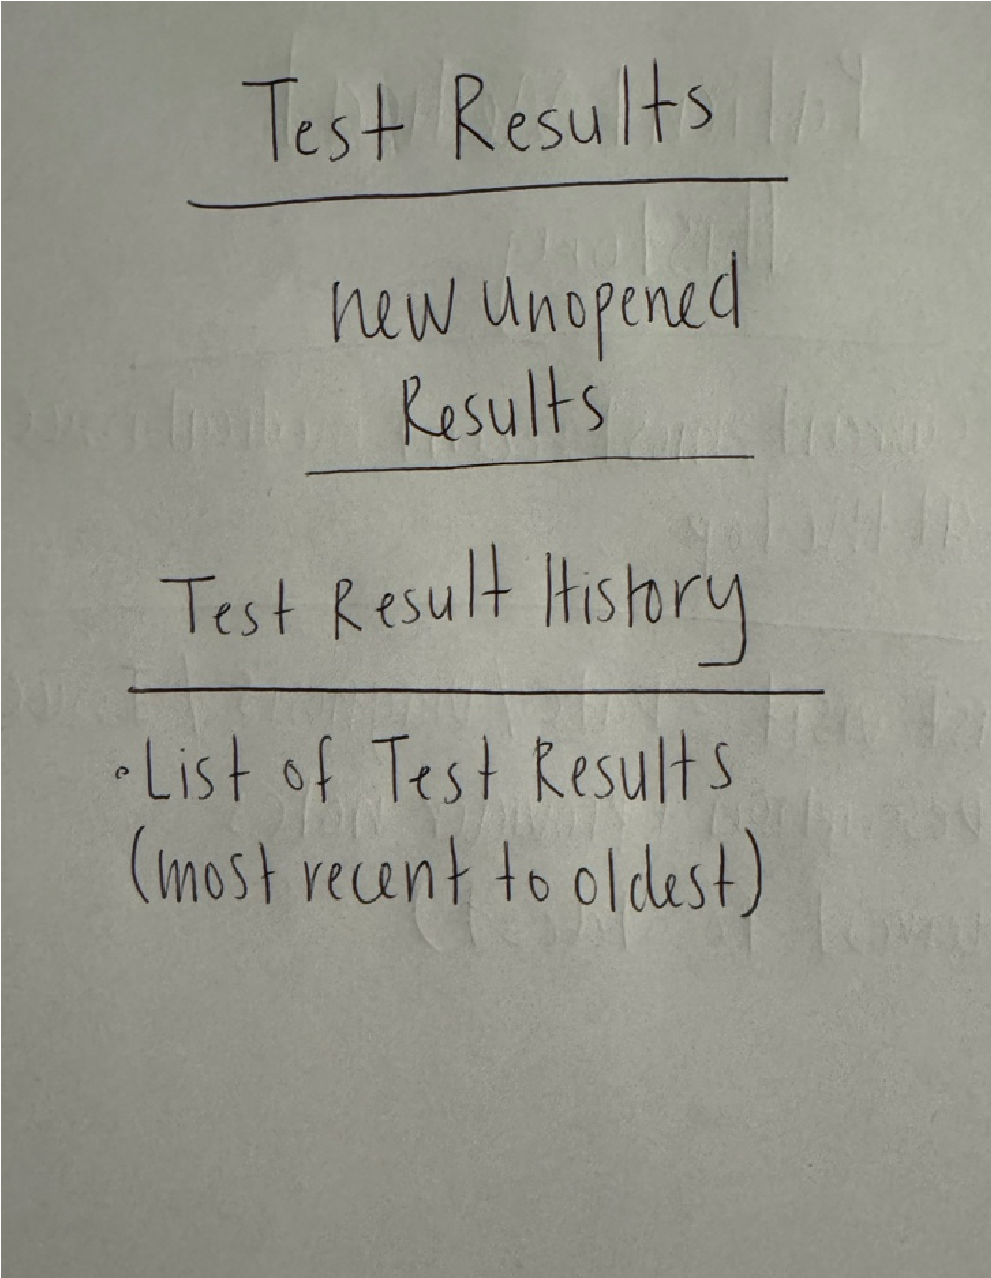 Test Results
new unopened
Results
Test Result History
• List of Test Results
(most recent to oldest)